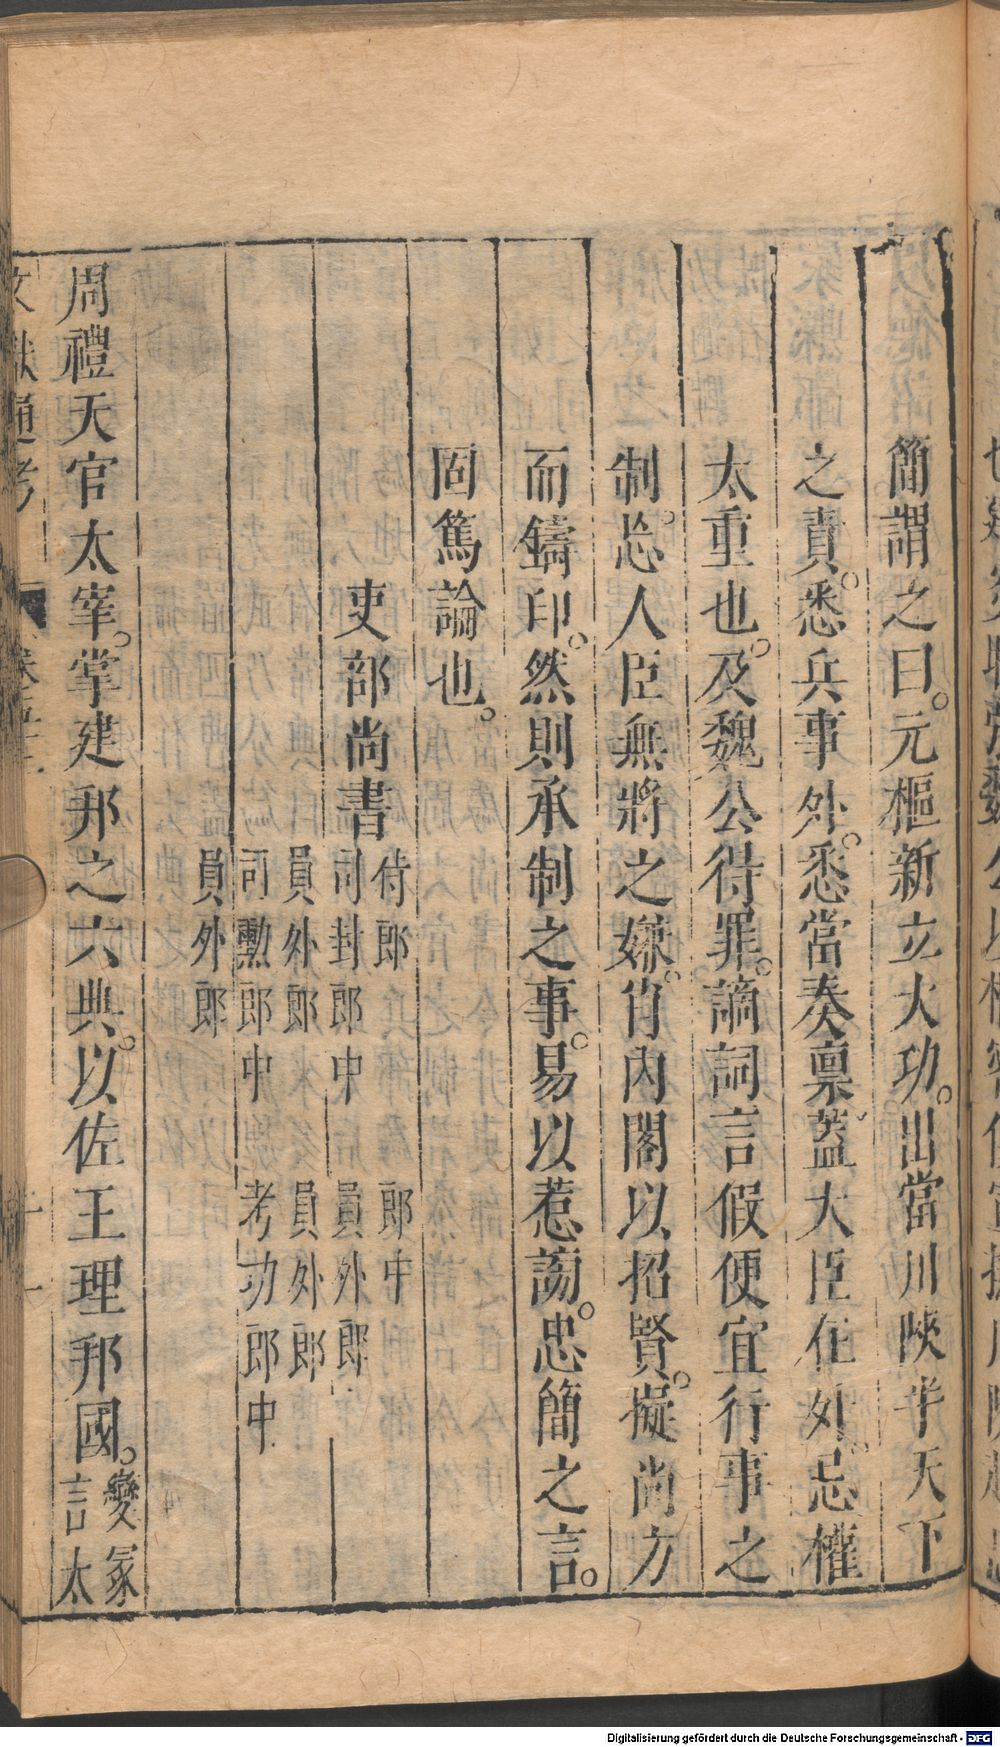 簡謂之曰。元樞新立大功。出當川陜半天下
之責。悉兵事外。悉當奏禀。蓋大臣在外。忌權
太重也。及魏公得罪。謫詞言假便宜行事之
制。忩人臣無將之嫌。肯內閣以招賢。擬尚方
而鑄印。然則承制之事。易以惹謗。忠簡之言。
固篤論也。
吏部尚書
侍郎 郎中
司封郎中 員外郎
員外郎 員外郎
司勲郎中 考功郎中
員外郎
周禮天官太宰。掌建邦之六典。以佐王理邦國。變冡
言太
文獻通考
Digitalisierung gefördert durch die Deutsche Forschungsgemeinschaft - DFG